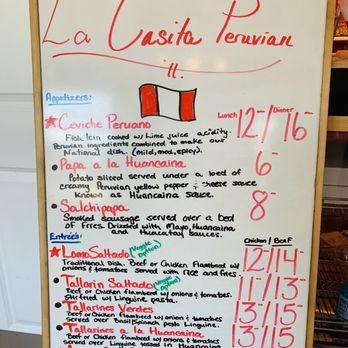 La Casita Peruvian
II.
Appetizers:
Lunch / Dinner
★ Ceviche Peruano 12-/16-
Fish loin cooked w/ Lime juice acidity.
Peruvian ingredients combined to make our
National dish. (mild, med, espicy).
• Papa a la Huancaina 6-
Potato sliced served under a bed of
creamy Peruvian yellow pepper & cheese sauce
known as Huancaina sauce.
• Salchipapa 8-
Smoked sausage served over a bed
of fries. Drizzled with Mayo, Huancaina
and Huacatay sauces.
Entrées: Chicken / Beef
★ Lomo Saltado (Veggie option) 12/14
Traditional Dish. Beef or Chicken flambeed w/
onions & tomatoes served with rice and fries.
• Tallarin Saltado (Veggie option) 11-/13-
Beef or Chicken flambeed w/ onions & tomatoes.
Stir fried w/ Linguine pasta.
• Tallarines Verdes 13-/15-
Beef or Chicken flambeed w/ onion & tomatoes
served over Basil/Spinach pesto Linguine.
• Tallarines a la Huancaina 13/15
Beef or Chicken flambeed w/ onions & tomatoes
served over Linguine tossed in Huancaina